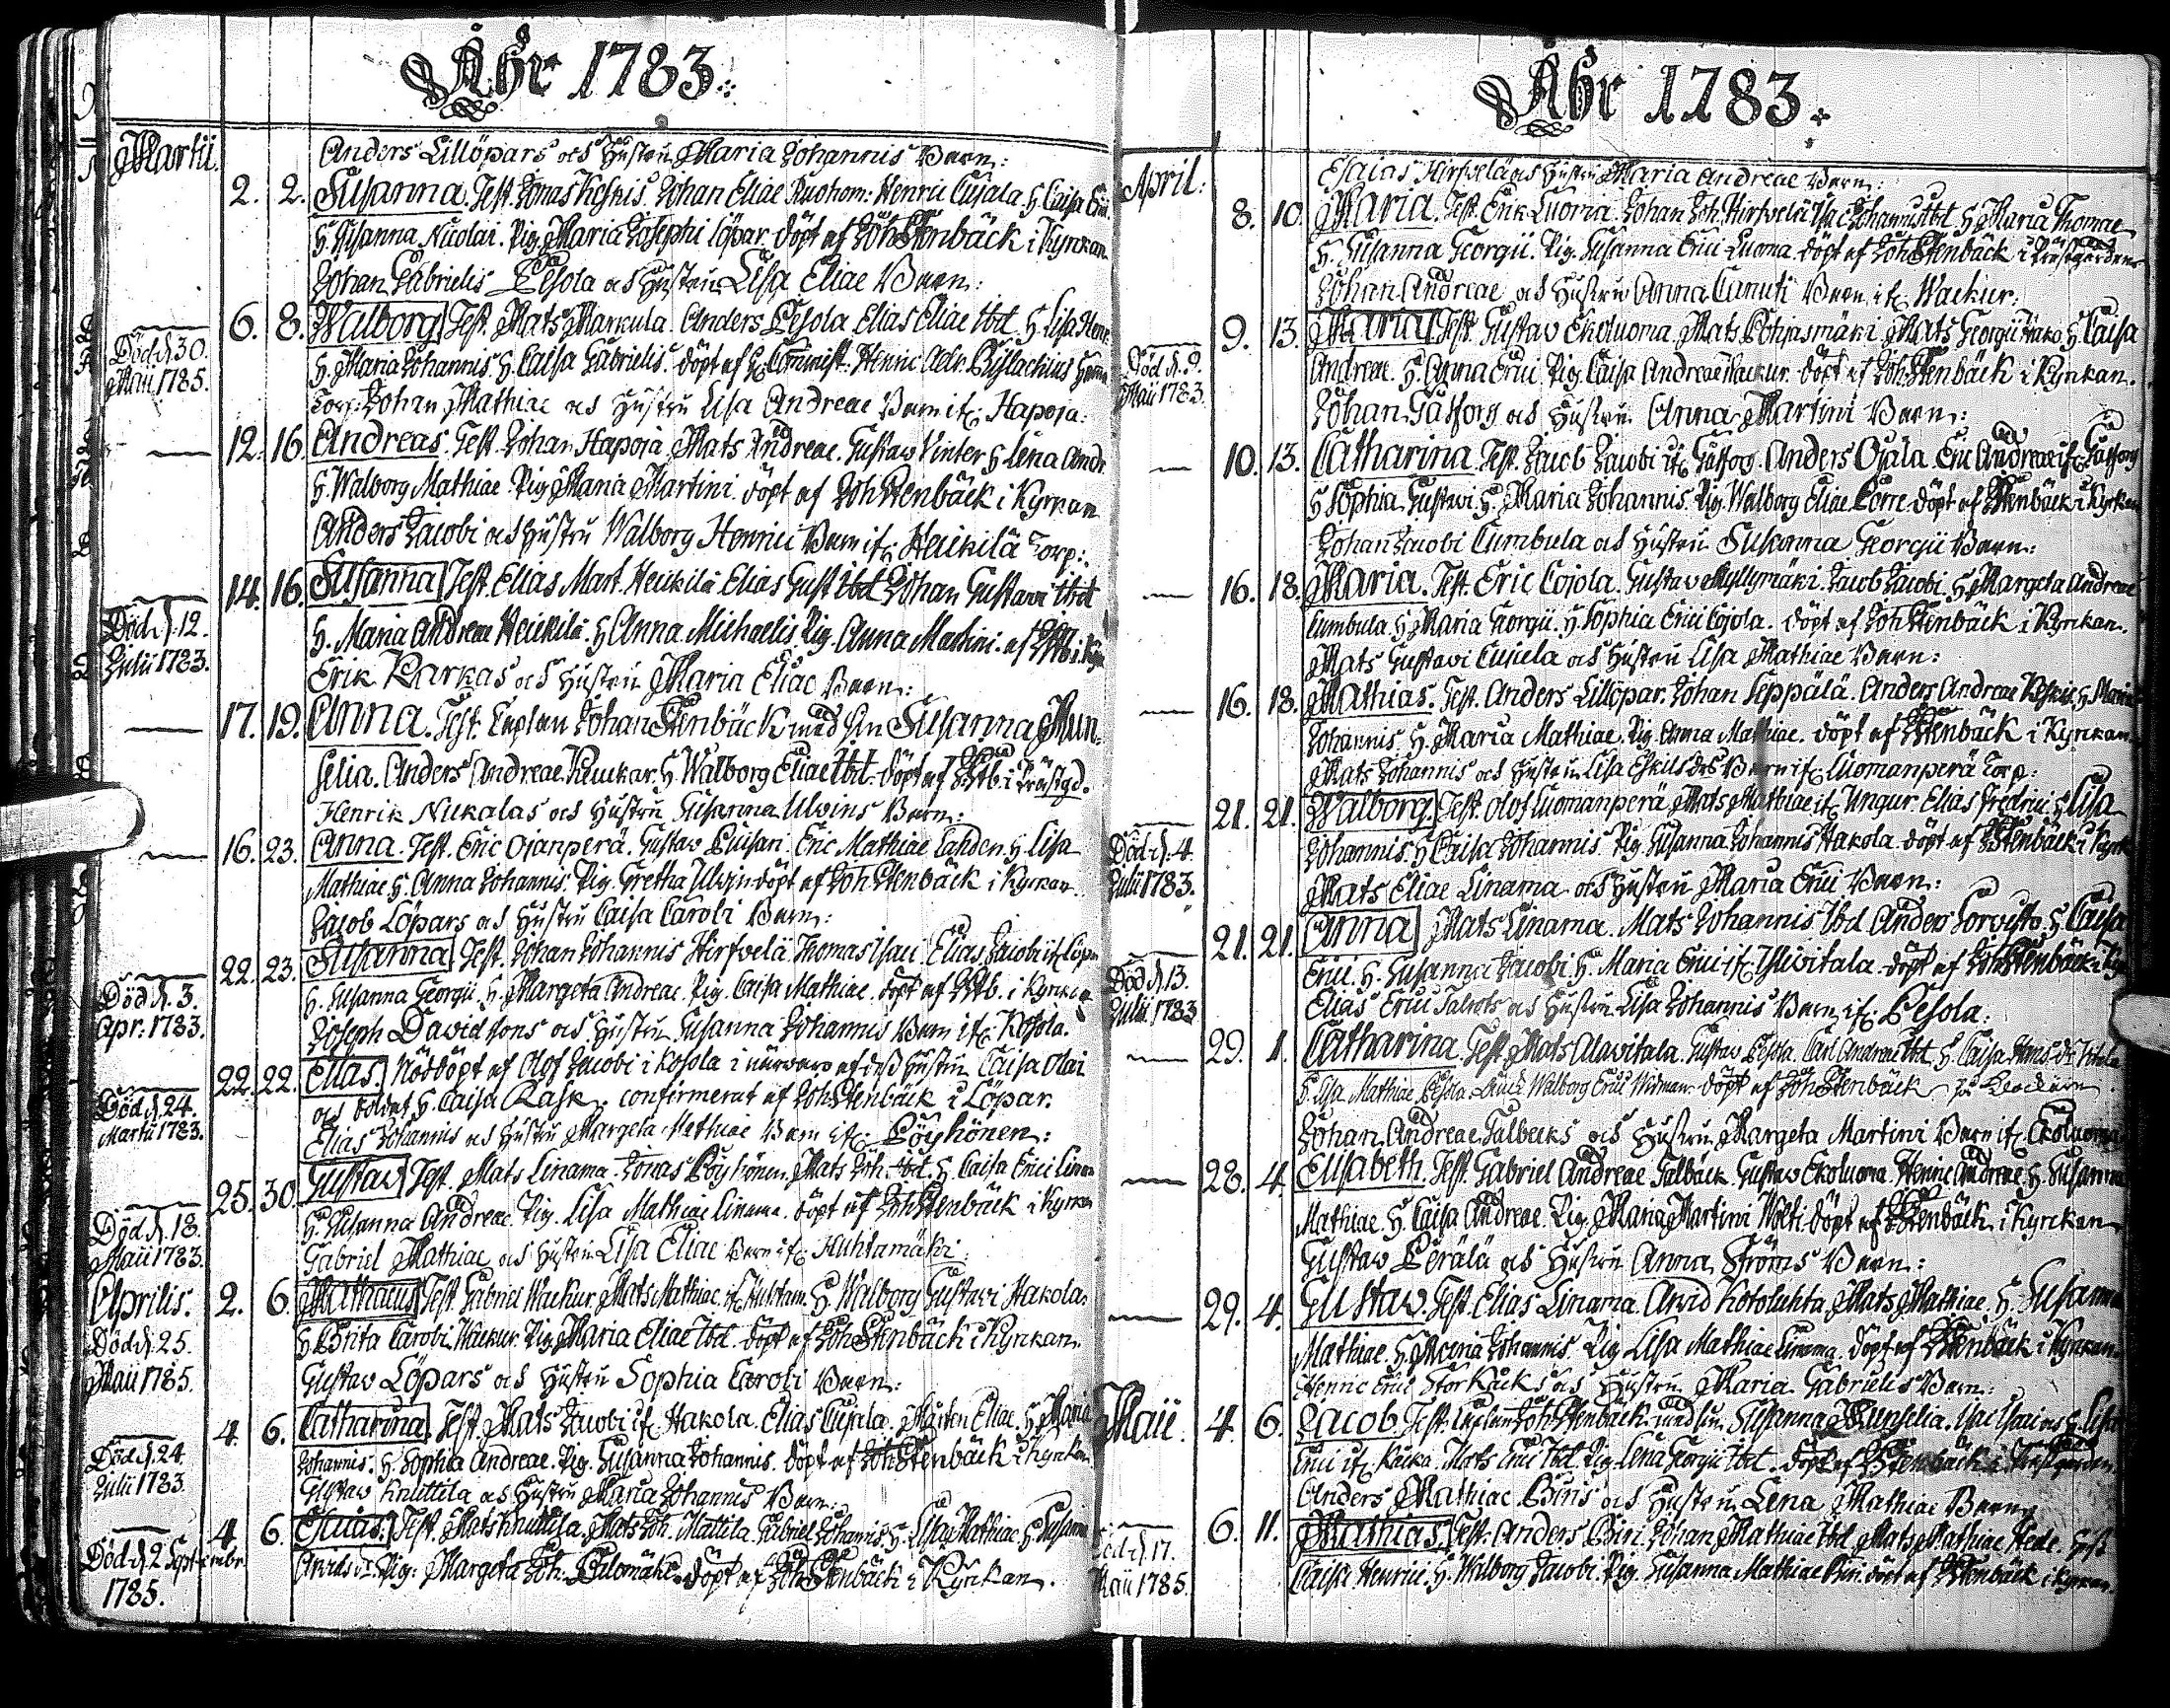 Åhr 1783.
Martii.
Anders Lillöpars och Hustru Maria Johannis Barn:
2. 2. Susanna. Test. Jonas Keskis. Johan Eliae Ruohom: Henric Cujala. H. Caisa
H. Susanna Nicolai. Pig. Maria Josephi Löpar. döpt af Joh Stenbäck i Kyrkan
Johan Gabrielis Pesola och Hustru Lisa Eliae Barn:
6. 8. Walborg Test. Mats Markula. Anders Pesola Elias Eliae Ibd. H. Lisa
Död d. 30. Maii 1785.
H. Maria Johannis. H. Caisa Gabrielis. döpt af Commist: Henric
Torp: Johan Mathiae och Hustru Lisa Andreae Barn if: Hapoja:
12. 16. Andreas. Test. Johan Hapoja Mats Andreae. Gustav Vinter H. Lena Andr.
H. Walborg Mathiae. Pig. Maria Martini. döpt af Joh Stenbäck i Kyrkan
Anders Jacobi och Hustru Walborg Henrici Barn if: Heickilä Torp:
14. 16. Susanna Test. Elias Mart. Heickilä Elias Gust Ibd Johan Gustavi Ibd
Död d. 12. Julii 1783.
H. Maria Andreae Heickilä. H Anna Michaelis Pig. Anna Mathiae. af
Erik Karkas och Hustru Maria Eliae Barn:
17. 19. Anna. Test. Caplan Johan Stenbäck med sin Susanna Mun-
selia. Anders Andreae H. Walborg Eliae Ibd. döpt af Stb. i Prästgd.
Henrik Nukalas och Hustru Susanna Ulvins Barn:
16. 23. Anna. Test. Eric Ojanperä. Gustav Luisari. Eric Mathiae Lahden. H. Lisa
Mathiae H. Anna Johannis. Pig. Gretha Ulvin döpt af Joh Stenbäck i Kyrkan
Jacob Löpars och Hustru Caisa Caroli Barn:
22. 23. Susanna Test. Johan Johannis Hirfvelä Thomas Isaci. Elias Jacobi if: Löpar
Död d. 3. Apr. 1783.
H. Susanna Georgii. H. Margeta Andreae. Pig. Caisa Mathiae. döpt af Stb. i Kyrkan
Joseph Davidsons och Hustru Susanna Johannis Barn if: Kosola.
22. 22. Elias. Nöddöpt af Olof Jacobi i Kosola i närvaro af dess Hustru Caisa Olai
Död d. 24. Martii 1783.
och H. Caisa Rask. confirmerat af Joh Stenbäck i Löpar.
Elias Johannis och Hustru Margeta Mathiae Barn if: Pöyhönen:
25. 30. Gustav Test. Mats Linama. Jonas Pöyhönen. Mats Joh. Ibd. H. Caisa Erici
Död d. 18. Maii 1783.
H. Susanna Andreae. Pig. Lisa Mathiae Linama. döpt af Joh Stenbäck i Kyrkan
Gabriel Mathiae och Hustru Lisa Eliae Barn if: Huhtamäki:
Aprilis. 2. 6. Mathaeus Test. Gabriel Wackur. Mats Mathiae. if: Huhtam. H. Walborg Gustavi Hakola
Död d. 25. Maii 1785.
H. Brita Caroli Wackur. Pig. Maria Eliae Ibd. döpt af Joh Stenbäck i Kyrkan.
Gustav Löpars och Hustru Sophia Caroli Barn:
4. 6. Catharina. Test. Mats Jacobi if: Hakola. Elias Cujala. Mårten Eliae. H. Maria
Död d. 24. Julii 1783.
Johannis. H. Sophia Andreae. Pig. Susanna Johannis. döpt af Joh Stenbäck i Kyrkan
Gustav Knuttila och Hustru Maria Johannis Barn:
4. 6. Elias. Test. Mats Knuttila. Mats Joh. Mattila. Gabriel Johannis. H. Lisa Mathiae H. Susanna
Död d. 2 September 1785.
Pig: Margeta Joh: döpt af Joh Stenbäck i Kyrkan.
Åhr 1783.
April:
Esaias Hirfvelä och Hustru Maria Andreae Barn:
8. 10. Maria. Test. Erik Luoma. Johan Joh. Hirfvelä Isac Johannis Ibd. H. Maria Thomae
H. Susanna Georgii. Pig. Susanna Erici Luoma. döpt af Joh Stenbäck i Prästgården
Johan Andreae och Hustru Anna Cunuti Barn if: Wackur:
9. 13. Maria Test. Gustav Ekoluoma. Mats Pohjasmäki. Mats Georgii Hako. H. Caisa
Död d. 9. Maii 1783.
Andreae. H. Anna Erici. Pig. Caisa Andreae Wackur. döpt af Joh Stenbäck i Kyrkan.
Johan Gästorg och Hustru Anna Martini Barn:
10. 13. Catharina. Test. Jacob Jacobi if: Anders Ojala. Eric Andreae if:
H Sophia Gustavi. H. Maria Johannis. Pig. Walborg Eliae döpt af Stenbäck i Kyrkan
Johan Jacobi Cumbula och Hustru Susanna Georgii Barn:
16. 18. Maria. Test. Eric Cojola. Gustav Myllymäki. Jacob Jacobi. H. Margeta Andreae
Cumbula. H. Maria Georgii. H. Sophia Erici Cojola. döpt af Joh Stenbäck i Kyrkan.
Mats Gustavi Cujala och Hustru Lisa Mathiae Barn:
16. 18. Mathias. Test. Anders Lillöpar. Johan Seppälä. Anders Andreae Keskis. H. Maria
Johannis. H. Maria Mathiae. Pig. Anna Mathiae. döpt af Stenbäck i Kyrkan
Mats Johannis och Hustru Lisa Eskilsdr Barn if: Luomanperä Torp:
21. 21. Walborg. Test. Olof Luomanperä Mats Mathiae if: Ungur. Elias Fredrici H. Lisa
Död d. 4. Julii 1783.
Johannis. H. Caisa Johannis Pig. Susanna Johannis Hakola. döpt af Stenbäck i Kyrk
Mats Eliae Linama och Hustru Maria Erici Barn:
21. 21. Anna Mats Linama. Mats Johannis Ibd. Anders H. Caisa
Död d. 13. Julii 1783
Erici. H. Susanna Jacobi. H. Maria Erici if: Yliwitala. döpt af Joh Stenbäck i
Elias Erici och Hustru Lisa Johannis Barn if: Pesola:
29. 1. Catharina. Test. Mats Alawitala. Gustav Pesola. Carl Andreae Ibd. H. Caisa
H. Lisa Mathiae Pesola. Walborg Erici Widman. döpt af Joh Stenbäck
Johan Andreae Talbecks och Hustru Margeta Martini Barn if: Ekoluoma
28. 4. Elisabeth. Test. Gabriel Andreae Talbäck. Gustav Ekoluoma. Henric Andreae. H. Susanna
Mathiae. H. Caisa Andreae. Pig. Maria Martini Wolti. döpt af Stenbäck i Kyrkan
Gustav Perälä och Hustru Anna Ströms Barn:
29. 4. Gustav. Test. Elias Linama. Arvid Kotoluhta. Mats Mathiae. H. Susanna
Mathiae. H. Maria Johannis Pig. Lisa Mathiae Linama. döpt af Stenbäck i Kyrkan
Henric Erici Storkäcks och Hustru Maria Gabrielis Barn:
Maii. 4. 6. Jacob. Test. Caplan Joh Stenbäck med sin Susanna Munselia. Isac Isaci och H. Lisa
Erici if: Kåcka. Mats Erici Ibd. Pig. Lena Georgii Ibd. döpt af Stenbäck i Prästgården
Anders Mathiae Biris och Hustru Lena Mathiae Barn:
6. 11. Mathias. Test. Anders Biri. Johan Mathiae Ibd. Mats Mathiae Hede.
Död d. 17. Maii 1785.
Caisa Henrici. H. Walborg Jacobi. Pig. Susanna Mathiae Biri. döpt af Stenbäck i Kyrkan.